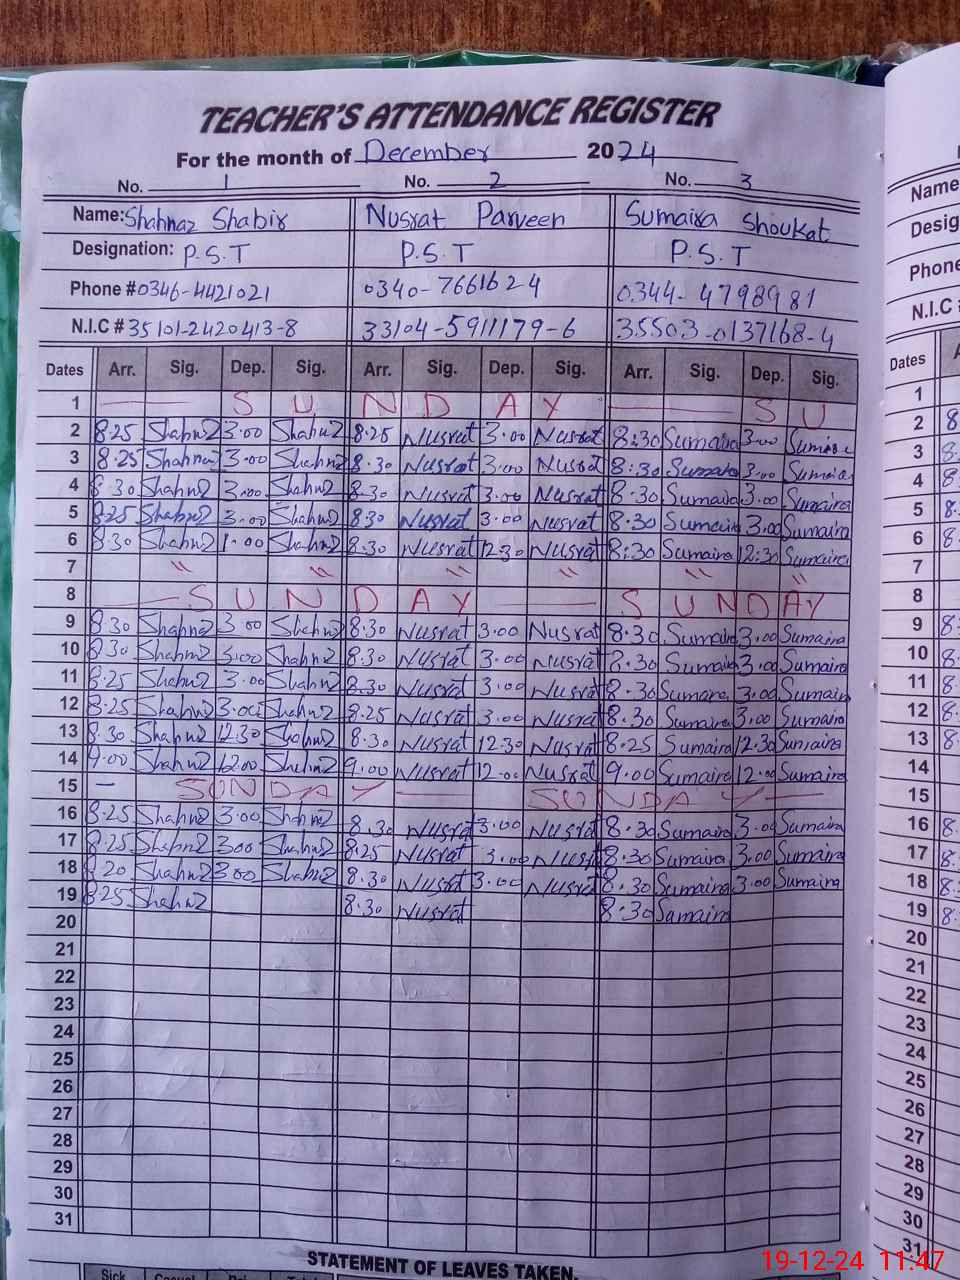 TEACHER'S ATTENDANCE REGISTER
For the month of December 2024
No. 1 No. 2 No. 3
Name: Shahnaz Shabir Nusrat Parveen Sumaira Shoukat
Designation: P.S.T P.S.T P.S.T
Phone # 0346-4421021 0340-7661624 0344-4798981
N.I.C # 35101-2420413-8 33104-5911179-6 35503-0137168-4
Dates Arr. Sig. Dep. Sig. Arr. Sig. Dep. Sig. Arr. Sig. Dep. Sig.
1 — S U N D A Y — S U
2 8.25 Shahnz 3.00 Shahnz 8.25 Nusrat 3.00 Nusrat 8:30 Sumaira 3.00 Sumaira
3 8.25 Shahnaz 3.00 Shahnz 8.30 Nusrat 3.00 Nusrat 8:30 Sumaira 3.00 Sumaira
4 8.30 Shahnz 3.00 Shahnz 8.30 Nusrat 3.00 Nusrat 8.30 Sumaira 3.00 Sumaira
5 8.25 Shahnz 3.00 Shahnz 8.30 Nusrat 3.00 Nusrat 8.30 Sumaira 3.00 Sumaira
6 8.30 Shahnz 1.00 Shahnz 8.30 Nusrat 12.30 Nusrat 8:30 Sumaira 12:30 Sumaira
7 " " " " " "
8 — S U N D A Y — S U N D A Y
9 8.30 Shahnz 3.00 Shahnz 8.30 Nusrat 3.00 Nusrat 8.30 Sumaira 3.00 Sumaira
10 8.30 Shahnz 3.00 Shahnz 8.30 Nusrat 3.00 Nusrat 8.30 Sumaira 3.00 Sumaira
11 8.25 Shahnz 3.00 Shahnz 8.30 Nusrat 3.00 Nusrat 8.30 Sumaira 3.00 Sumaira
12 8.25 Shahnz 3.00 Shahnz 8.25 Nusrat 3.00 Nusrat 8.30 Sumaira 3.00 Sumaira
13 8.30 Shahnz 12.30 Shahnz 8.30 Nusrat 12.30 Nusrat 8.25 Sumaira 12.30 Sumaira
14 9.00 Shahnz 12.00 Shahnz 9.00 Nusrat 12.00 Nusrat 9.00 Sumaira 12.00 Sumaira
15 — SUNDAY — SUNDAY —
16 8.25 Shahnz 3.00 Shahnz 8.30 Nusrat 3.00 Nusrat 8.30 Sumaira 3.00 Sumaira
17 8.25 Shahnz 3.00 Shahnz 8.25 Nusrat 3.00 Nusrat 8.30 Sumaira 3.00 Sumaira
18 8.20 Shahnz 3.00 Shahnz 8.30 Nusrat 3.00 Nusrat 8.30 Sumaira 3.00 Sumaira
19 8.25 Shahnz 8.30 Nusrat 8.30 Sumaira
20
21
22
23
24
25
26
27
28
29
30
31
STATEMENT OF LEAVES TAKEN.
Sick Casual
Name
Desig
Phone
N.I.C #
Dates
1
2 8
3 8
4 8
5 8
6 8
7
8
9 8
10 8
11 8
12 8
13 8
14
15
16 8
17 8
18 8
19 8
20
21
22
23
24
25
26
27
28
29
30
31
19-12-24 11:47